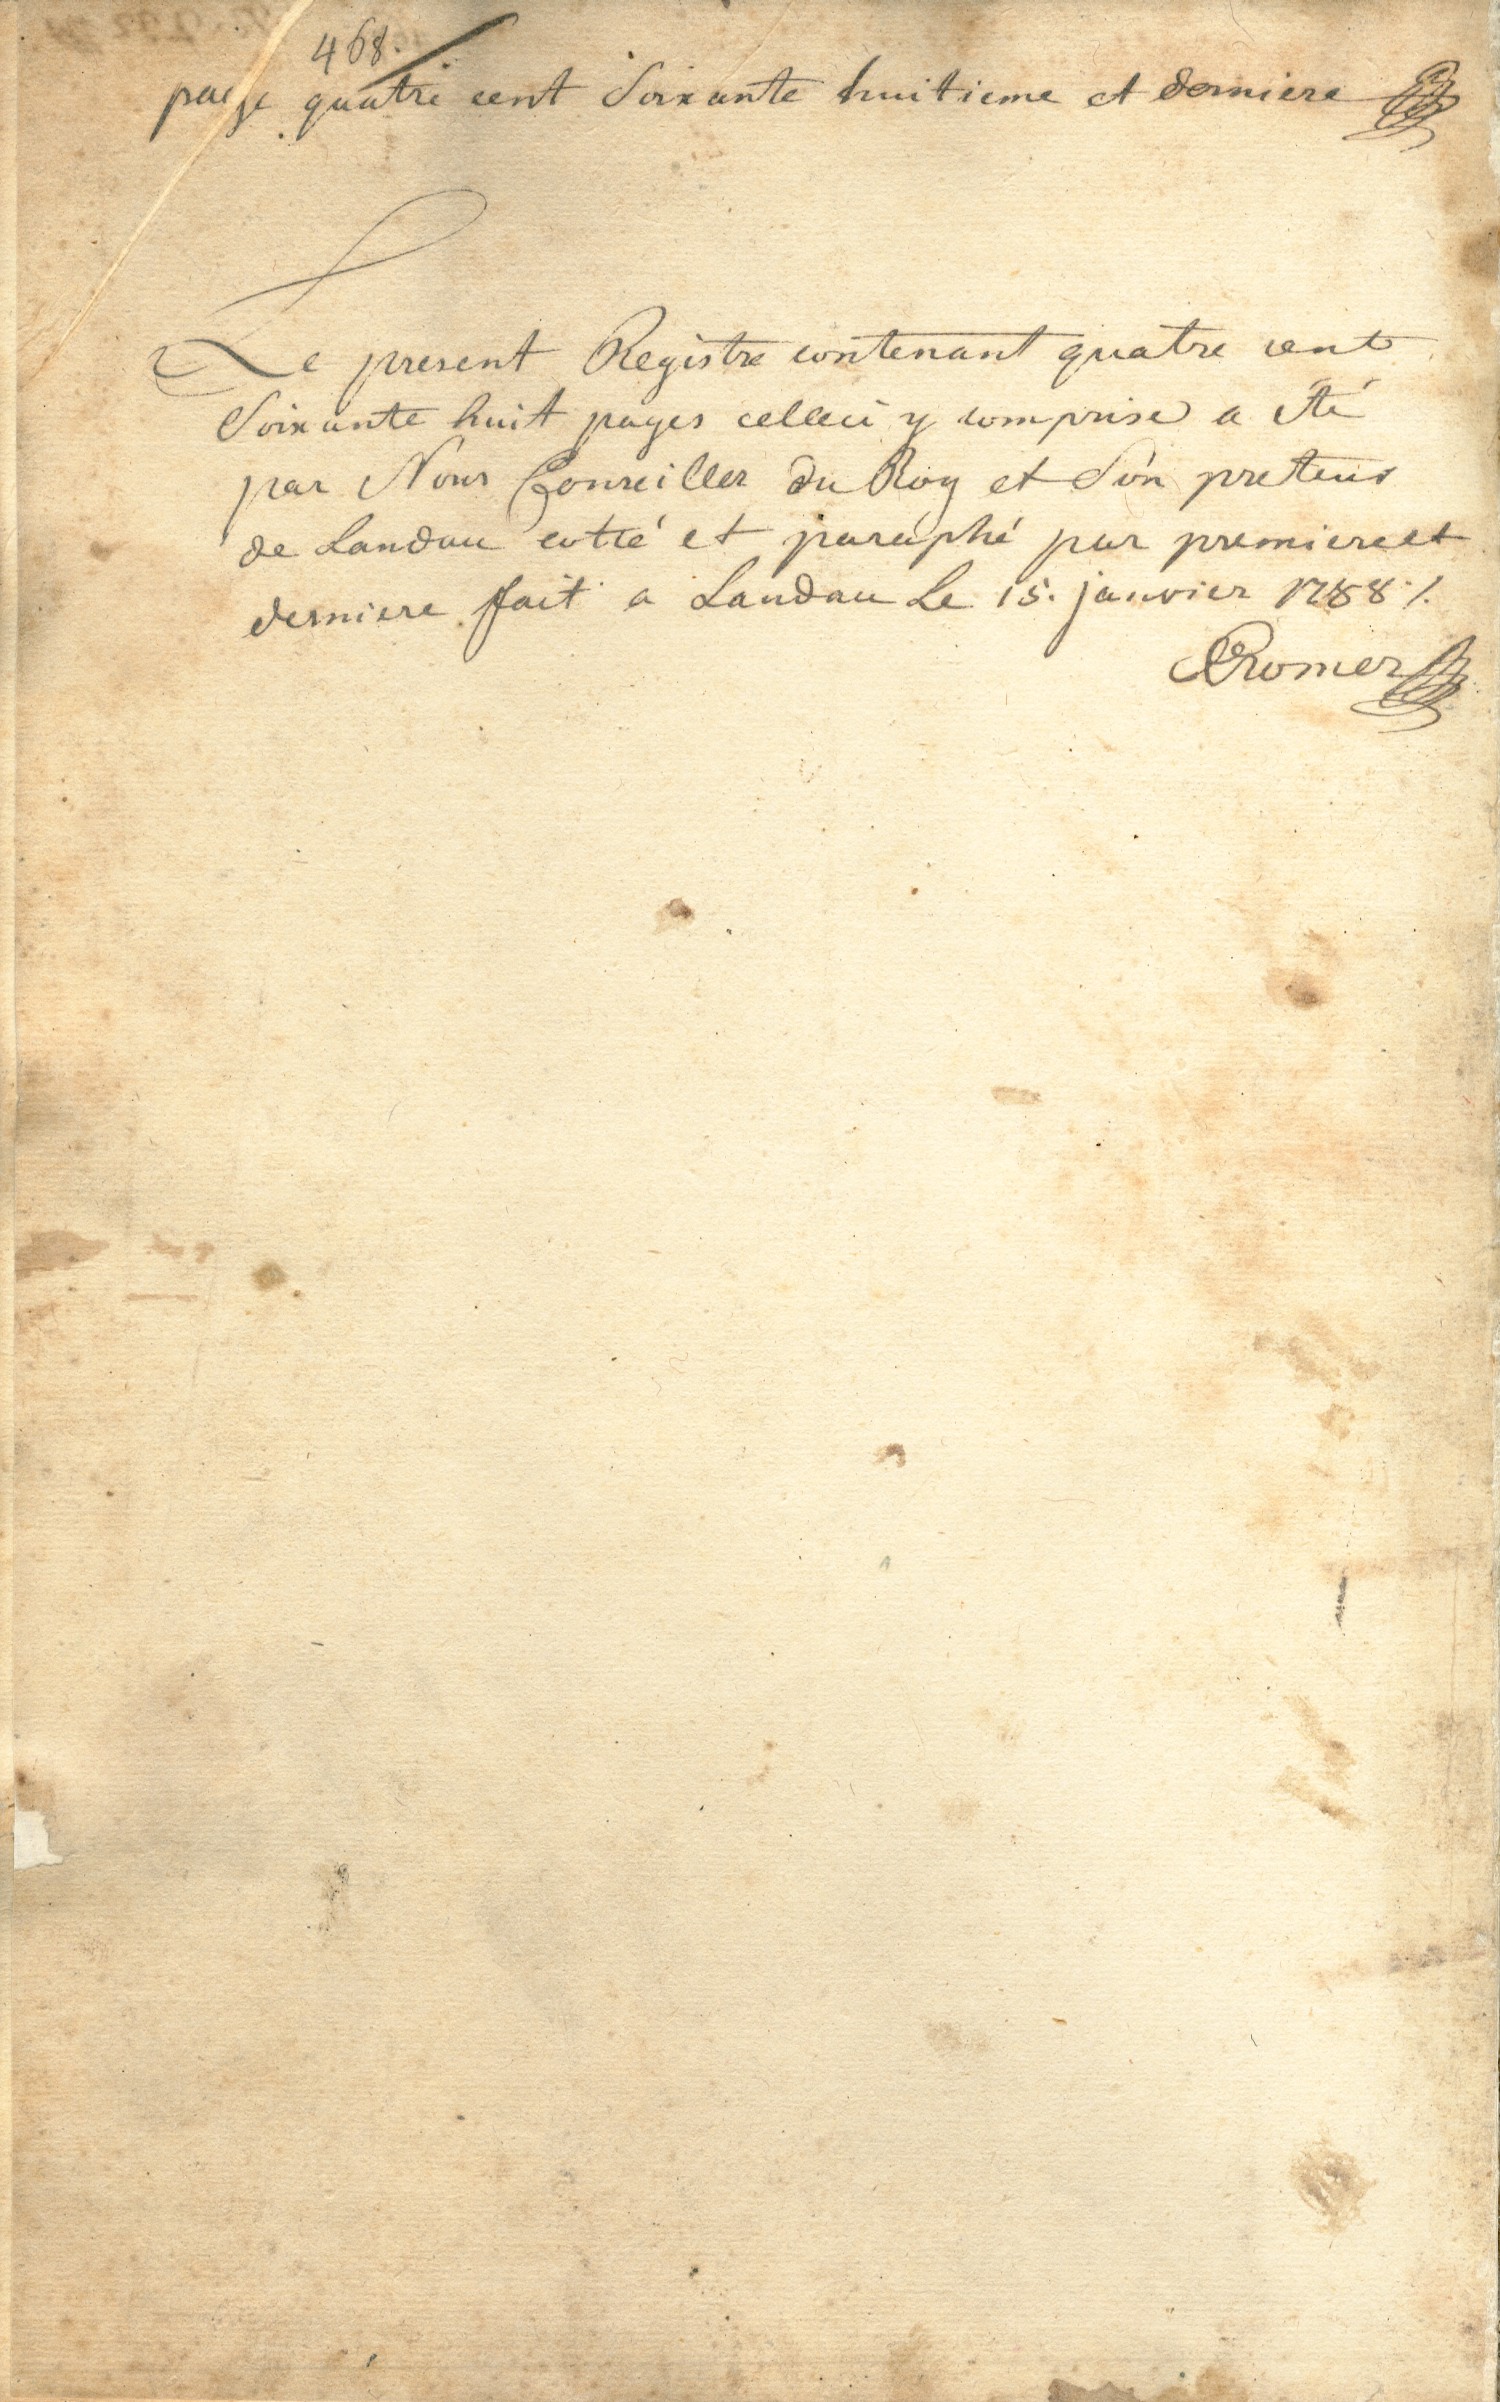 468.
page quatre cent Soixante huitieme et derniere
Le present Registre contenant quatre cent
Soixante huit pages celleci y comprise a été
par Nous Conseiller du Roy et Son preteur
de Landau cotté et paraphé par premiere et
derniere fait a Landau Le 15. janvier 1788 ./.
Romer